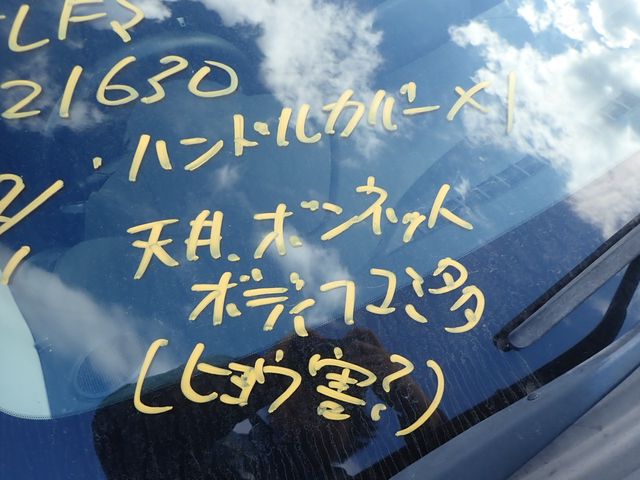 21630
・ハンドルカバー×1
天井、ボンネット
ボディコミ多
(ヒョウ害?)